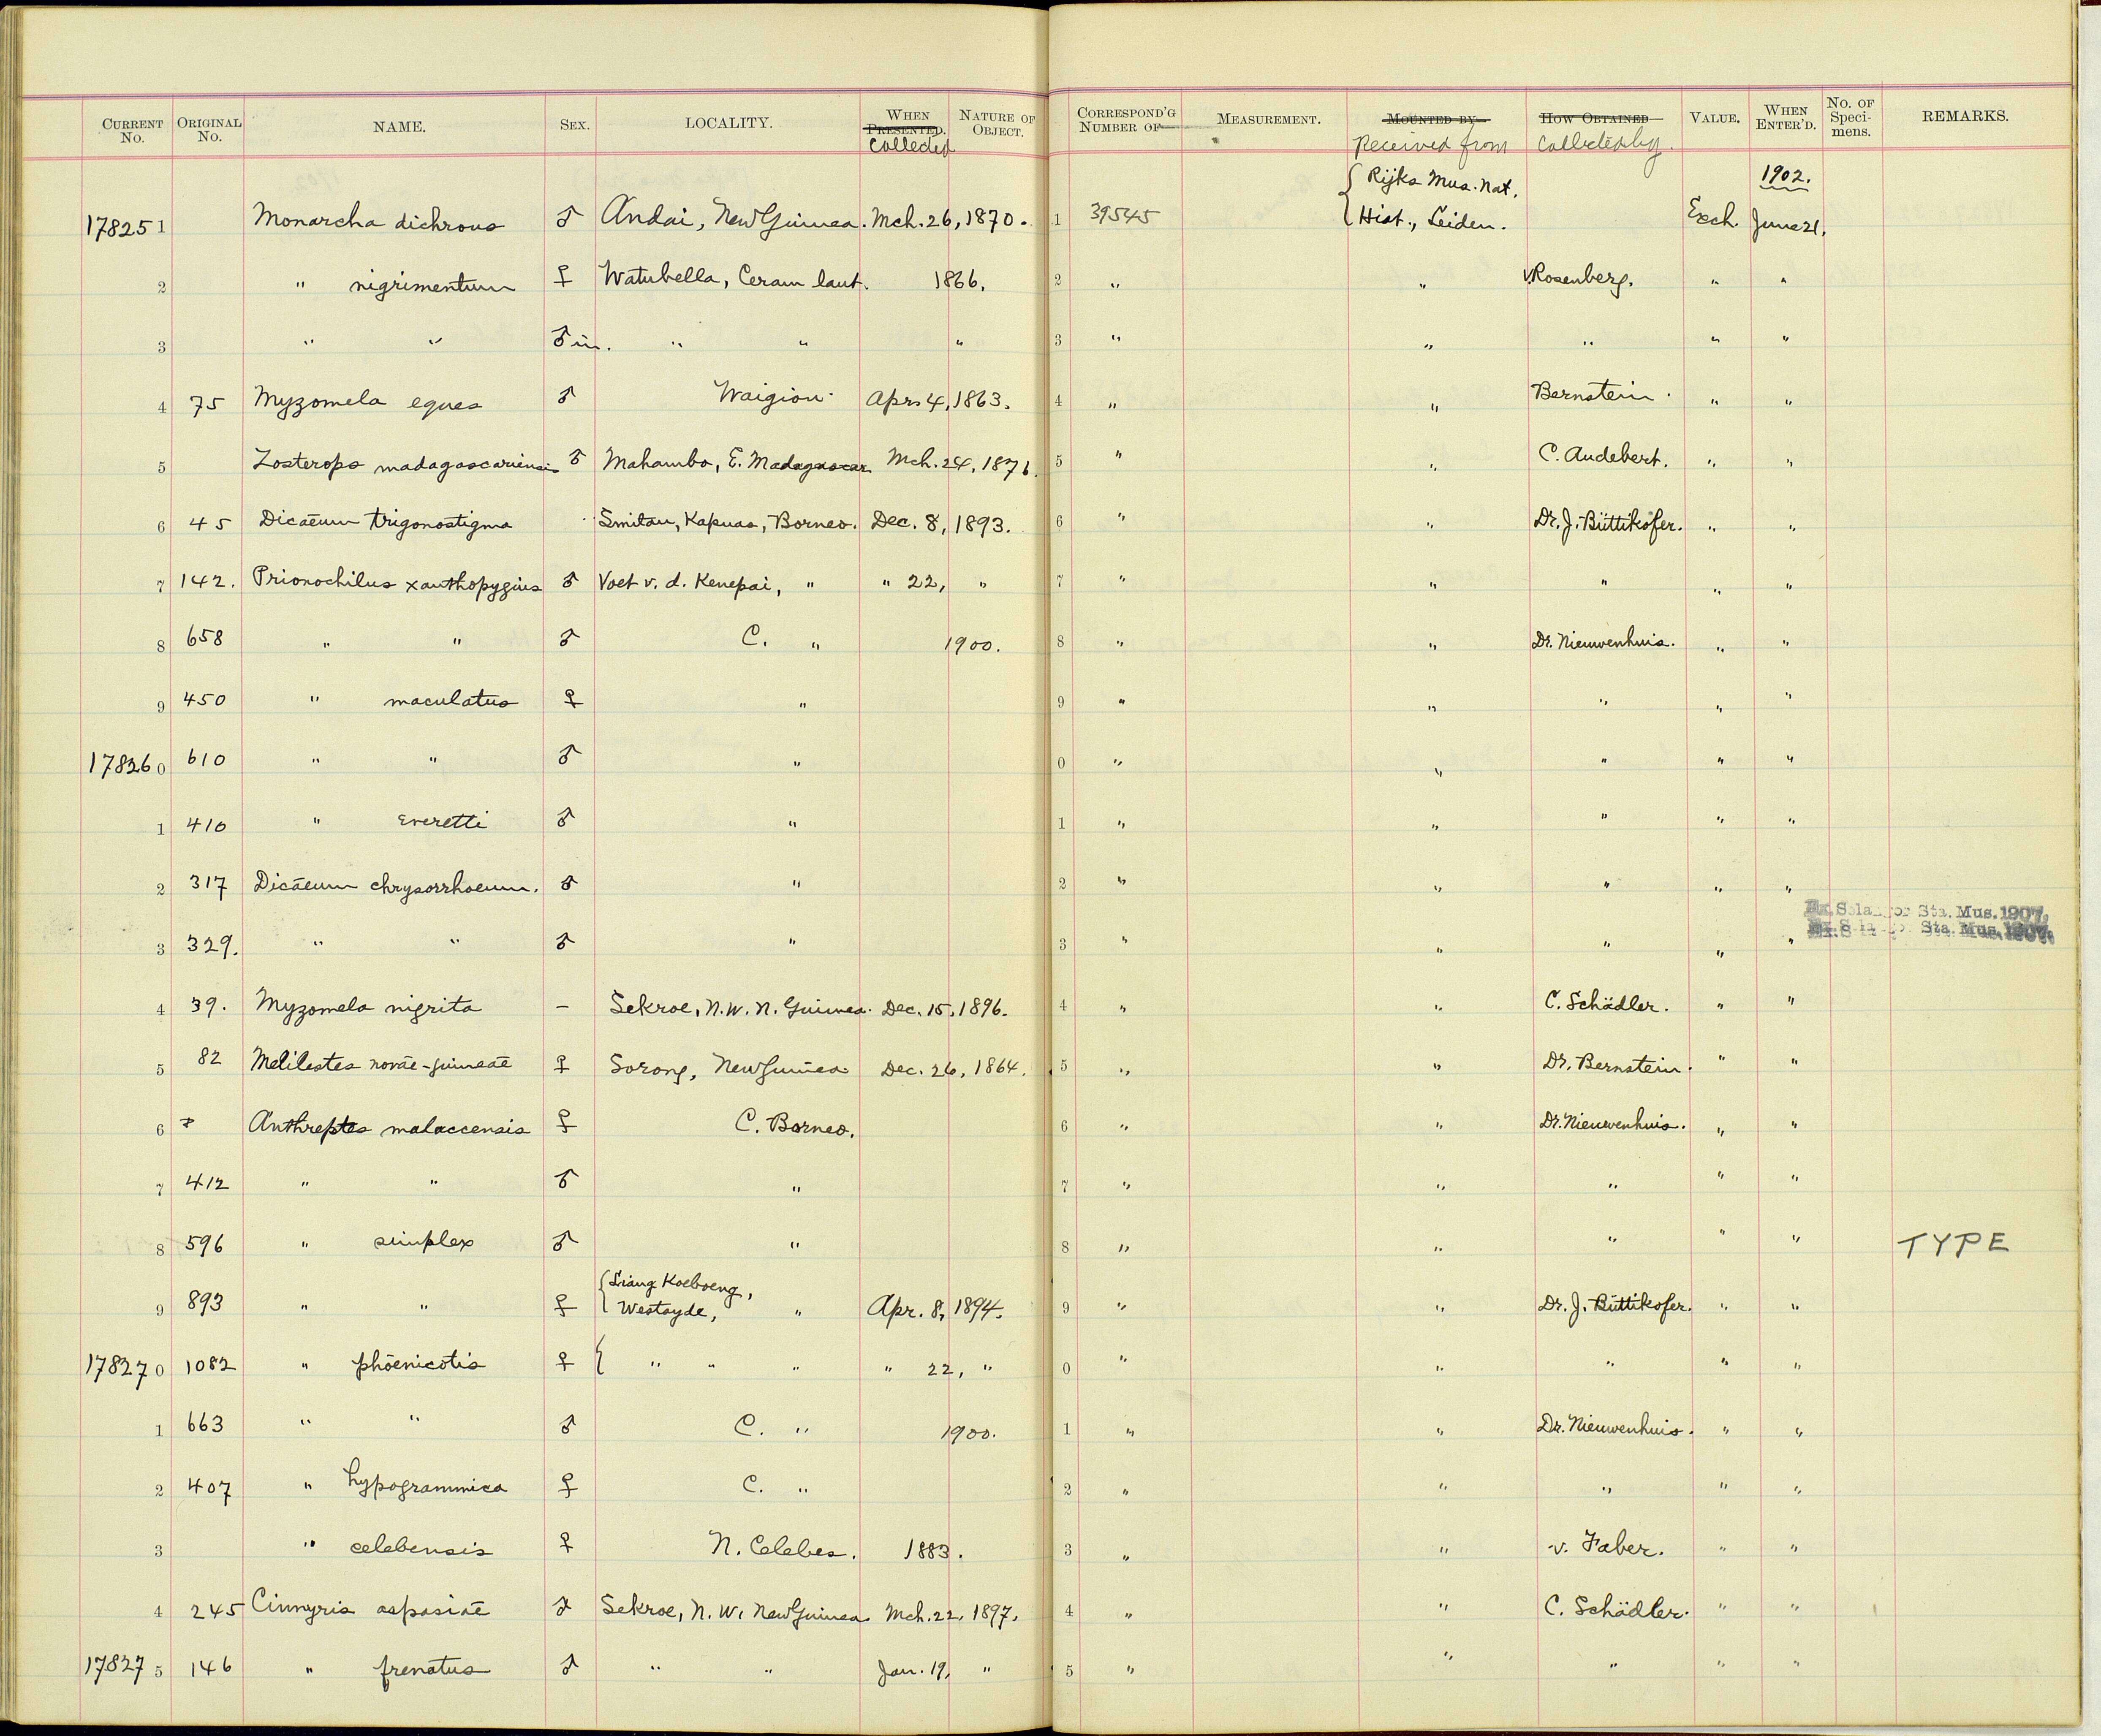 CURRENT No. ORIGINAL No. NAME. SEX. LOCALITY. WHEN PRESENTED. Collected NATURE OF OBJECT. CORRESPOND'G NUMBER OF MEASUREMENT. MOUNTED BY Received from HOW OBTAINED Collected by VALUE. WHEN ENTER'D. No. OF Speci-mens. REMARKS.
{ Rijks Mus. Nat. 1902.
178251 Monarcha dichrous ♂ Andai, New Guinea. Mch. 26, 1870. 1 39545 Hist., Leiden. Exch. June 21.
2 " nigrimentum ♀ Watubella, Ceram laut. 1866. 2 " " v. Rosenberg. " "
3 " " ♂ " " " 3 " " " " "
4 75 Myzomela eques ♂ Waigiou. Apr. 4, 1863. 4 " " Bernstein. " "
5 Zosterops madagascariensis ♂ Mahambo, E. Madagascar Mch. 24, 1876. 5 " " C. Audebert. " "
6 45 Dicaeum trigonostigma Smitau, Kapuas, Borneo. Dec. 8, 1893. 6 " " Dr. J. Büttikofer. " "
7 142. Prionochilus xanthopygius ♂ Voet v. d. Kenepai, " " 22, " 7 " " " " "
8 658 " " ♂ C. " 1900. 8 " " Dr. Nieuwenhuis. " "
9 450 " maculatus ♀ " 9 " " " " "
178260 610 " " ♂ " 0 " " " " "
1 410 " everetti ♂ " 1 " " " " "
2 317 Dicaeum chrysorrhoeum. ♂ " 2 " " " " "
Ex. Selangor Sta. Mus. 1907.
Ex. Selangor Sta. Mus. 1907.
3 329. " " ♂ " 3 " " " " "
4 39. Myzomela nigrita – Sekroe, N.W. N. Guinea. Dec. 15, 1896. 4 " " C. Schädler. " "
5 82 Melilestes novae-guineae ♀ Sorong, New Guinea Dec. 26, 1864. 5 " " Dr. Bernstein. " "
6 Anthreptes malaccensis ♀ C. Borneo. 6 " " Dr. Nieuwenhuis. " "
7 412 " " ♂ " 7 " " " " "
8 596 " simplex ♂ " 8 " " " " " TYPE
{ Liang Koeboeng,
9 893 " " ♀ Westzyde, " Apr. 8, 1894. 9 " " Dr. J. Büttikofer. " "
178270 1082 " phoenicotis ♀ { " " " " 22, " 0 " " " " "
1 663 " " ♂ C. " 1900. 1 " " Dr. Nieuwenhuis. " "
2 407 " hypogrammica ♀ C. " 2 " " " " "
3 " celebensis ♀ N. Celebes. 1883. 3 " " v. Faber. " "
4 245 Cinnyris aspasiae ♂ Sekroe, N. W. New Guinea Mch. 22, 1897. 4 " " C. Schädler. " "
178275 146 " frenatus ♂ " " Jan. 19, " 5 " " " " "